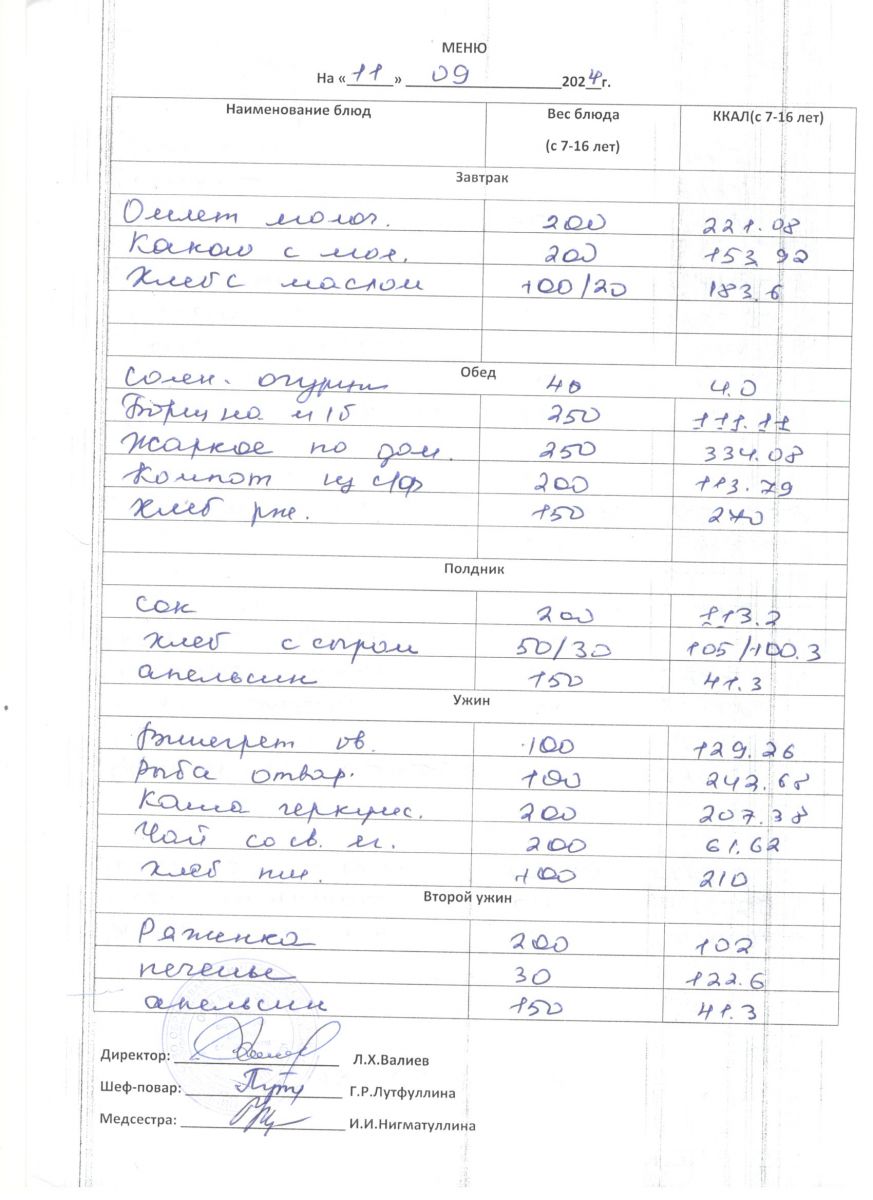 МЕНЮ
На «11» 09 2024г.
Наименование блюд Вес блюда (с 7-16 лет) ККАЛ(с 7-16 лет)
Завтрак
Омлет молоч. 200 221.08
Какао с мол. 200 153,92
Хлеб с маслом 100/20 183.6
Обед
Солен. огурцы 40 4.0
Борщ на м/б 250 111.11
Жаркое по дом. 250 334.08
Компот из с/ф 200 113.79
Хлеб рж. 150 270
Полдник
Сок 200 113.2
Хлеб с сыром 50/30 105/100.3
апельсин 150 41.3
Ужин
Винегрет ов. 100 129.26
Рыба отвар. 100 242.68
Каша геркулес. 200 207.38
Чай со св. яг. 200 61.62
Хлеб пш. 100 210
Второй ужин
Ряженка 200 102
печенье 30 122.6
апельсин 150 41.3
Директор: Л.Х.Валиев
Шеф-повар: Г.Р.Лутфуллина
Медсестра: И.И.Нигматуллина